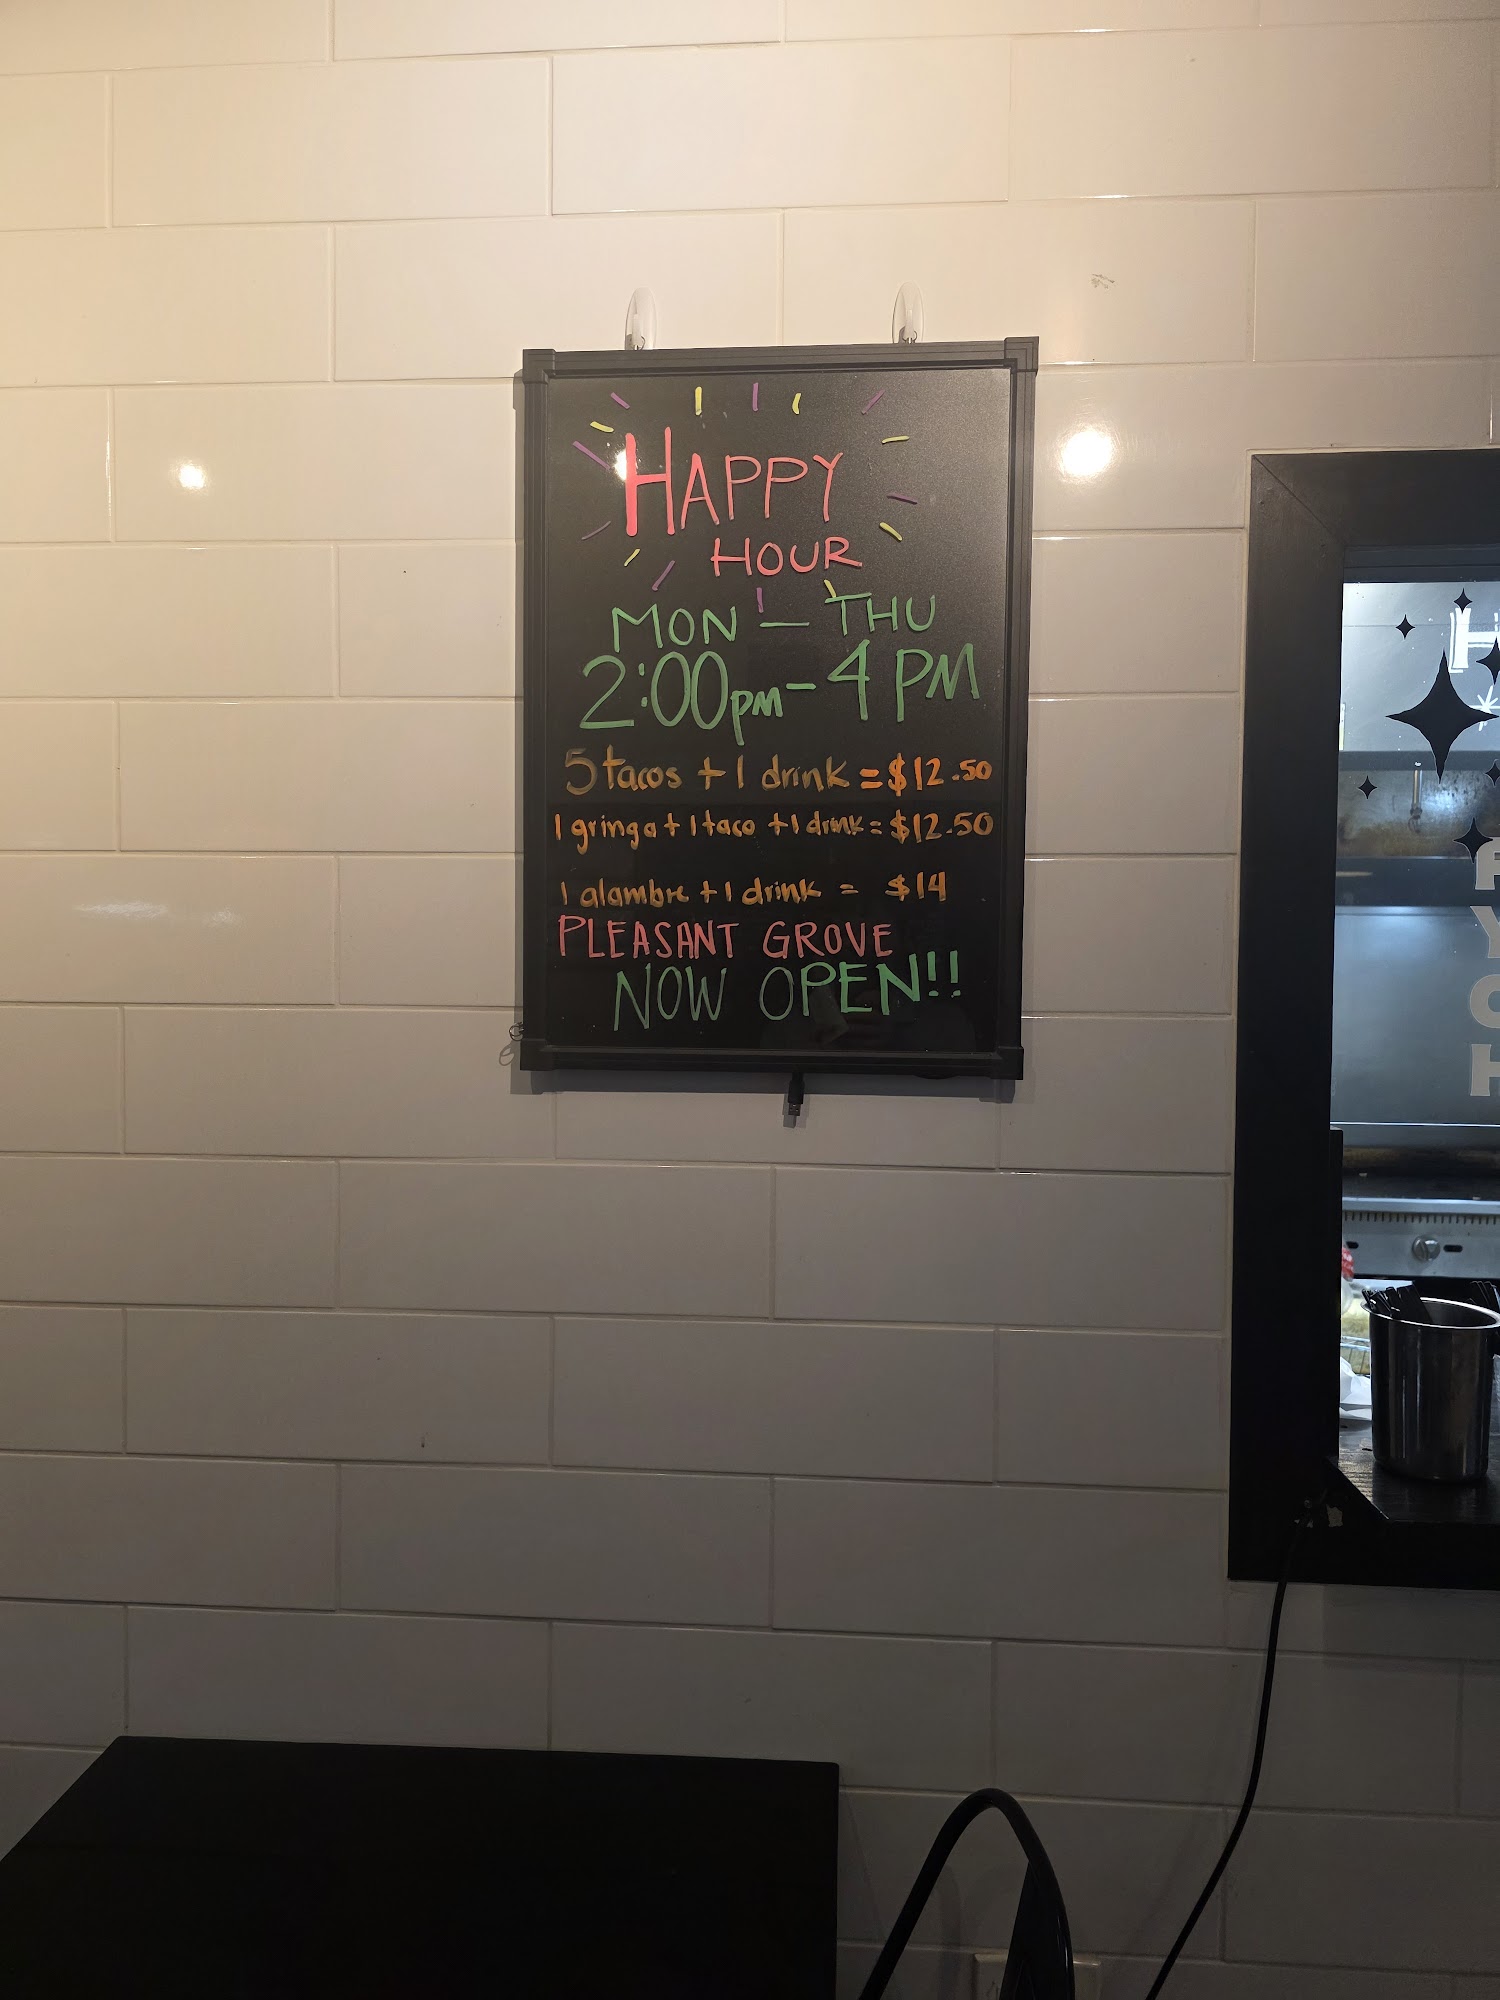 HAPPY
HOUR
MON — THU
2:00pm - 4 PM
5 tacos + 1 drink = $12.50
1 gringa + 1 taco + 1 drink = $12.50
1 alambre + 1 drink = $14
PLEASANT GROVE
NOW OPEN!!